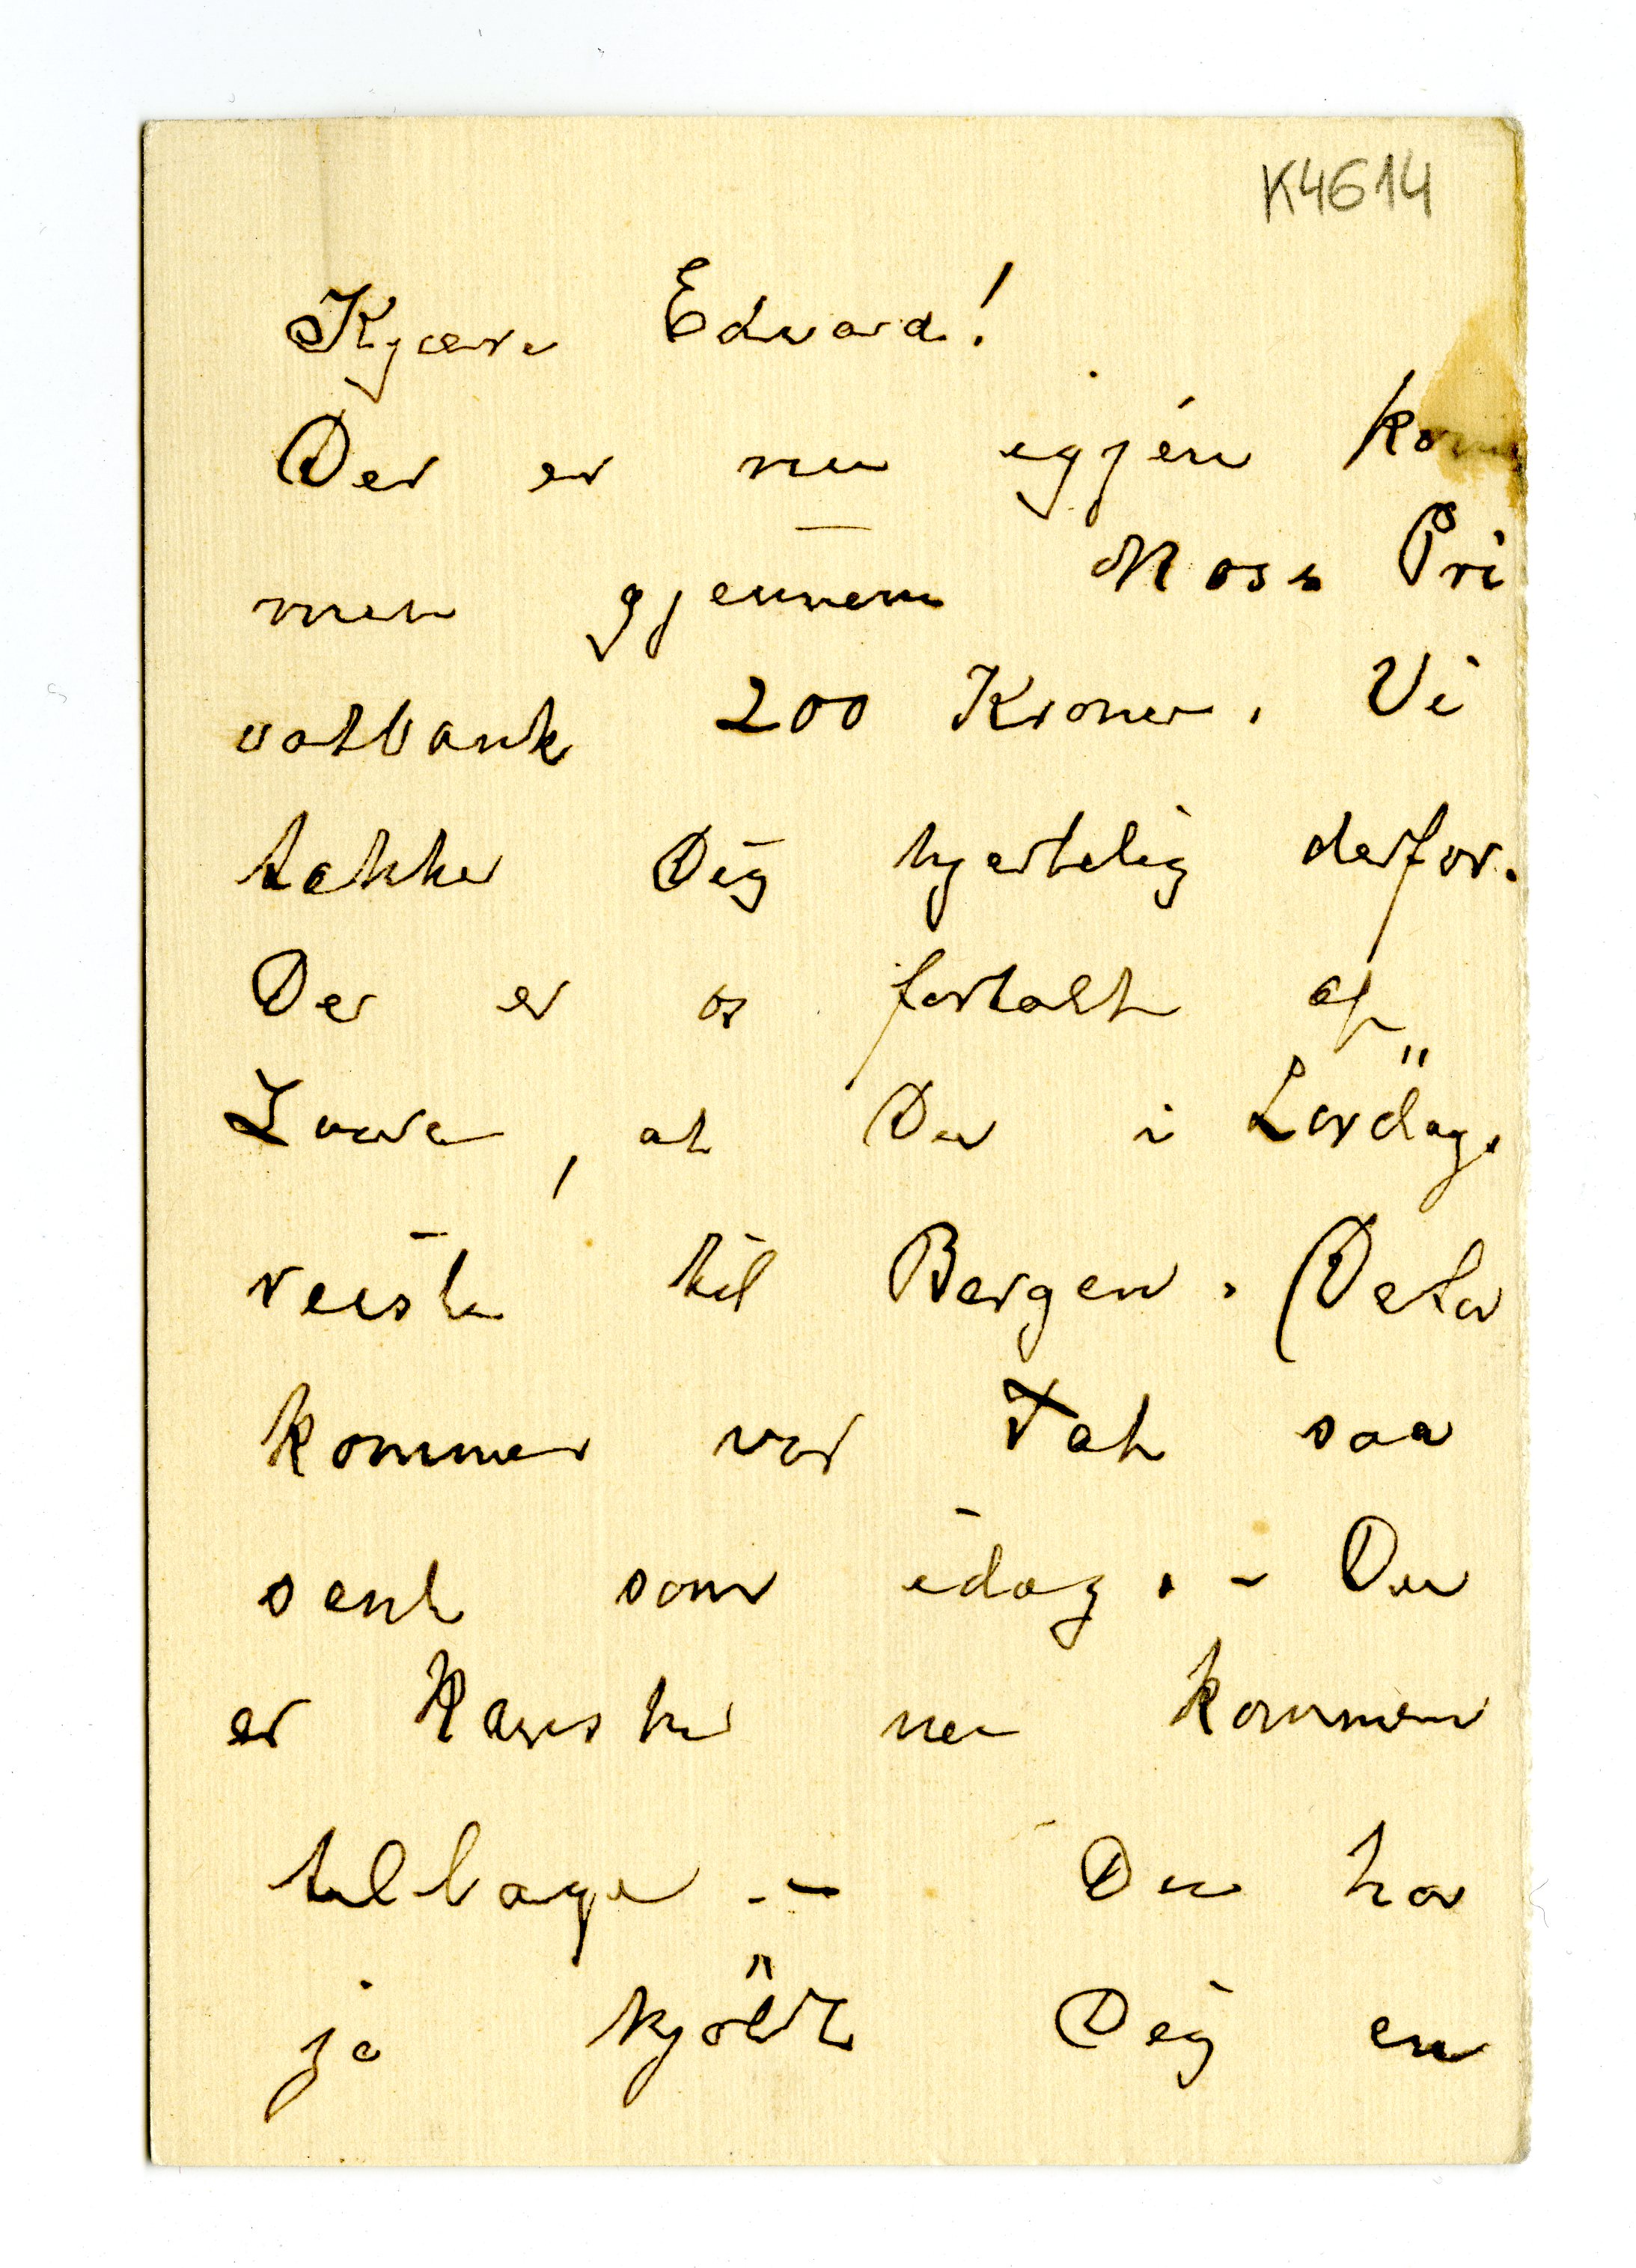 K4614
Kjære Edvard!
Der er nu igjén kom
men gjennem Moss Pri
vatbank 200 Kroner. Vi
takker Dig hjertelig derfor.
Der er os fortalt af
Laura, at Du i Lördag.
reiste til Bergen. Defor
kommer vor Tak saa
sent som idag. – Du
er kanske nu kommen
tilbage. – Du har
ja kjöbt Dig en